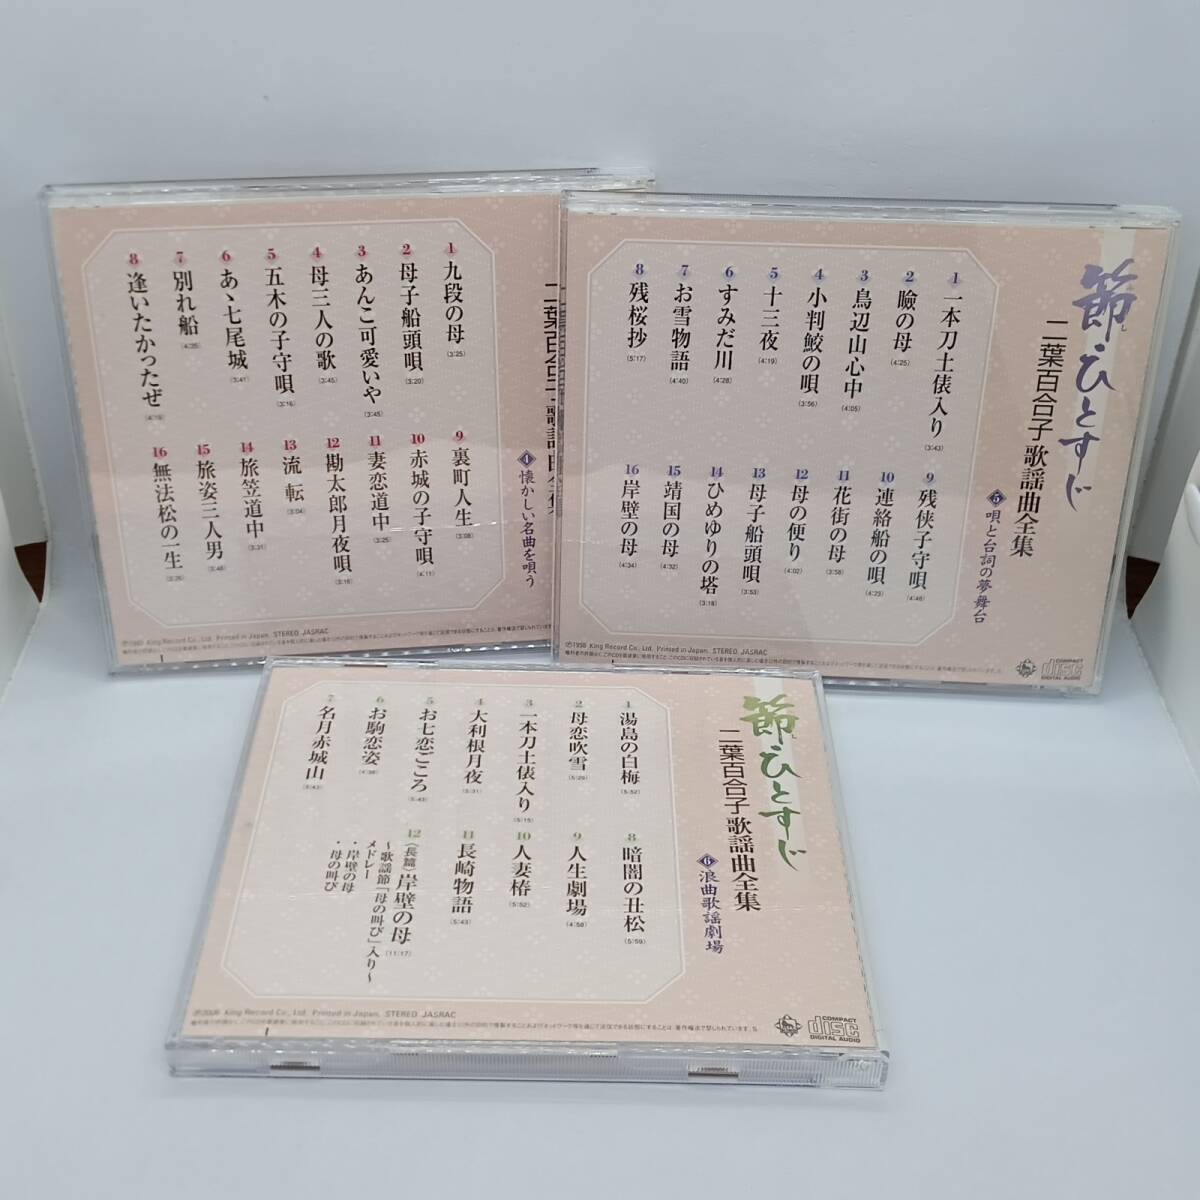 二葉百合子歌謡曲全集
4 懐かしい名曲を唄う
1 九段の母 (3:25)
2 母子船頭唄 (3:20)
3 あんこ可愛いや (3:45)
4 母三人の歌 (3:45)
5 五木の子守唄 (3:16)
6 あゝ七尾城 (3:41)
7 別れ船 (4:35)
8 逢いたかったぜ (4:19)
9 裏町人生 (3:08)
10 赤城の子守唄 (4:11)
11 妻恋道中 (3:25)
12 勘太郎月夜唄 (3:16)
13 流転 (3:04)
14 旅笠道中 (3:31)
15 旅姿三人男 (3:46)
16 無法松の一生 (3:26)
King Record Co., Ltd. Printed in Japan. STEREO JASRAC
節ひとすじ
二葉百合子歌謡曲全集
5 唄と台詞の夢舞台
1 一本刀土俵入り (3:43)
2 瞼の母 (4:25)
3 鳥辺山心中 (4:05)
4 小判鮫の唄 (3:56)
5 十三夜 (4:19)
6 すみだ川 (4:28)
7 お雪物語 (4:40)
8 残桜抄 (5:17)
9 残侠子守唄 (4:46)
10 連絡船の唄 (4:23)
11 花街の母 (3:58)
12 母の便り (4:02)
13 母子船頭唄 (3:53)
14 ひめゆりの塔 (3:18)
15 靖国の母 (4:32)
16 岸壁の母 (4:34)
℗1998 King Record Co., Ltd. Printed in Japan. STEREO JASRAC
COMPACT disc DIGITAL AUDIO
節ひとすじ
二葉百合子歌謡曲全集
6 浪曲歌謡劇場
1 湯島の白梅 (5:52)
2 母恋吹雪 (5:29)
3 一本刀土俵入り (5:15)
4 大利根月夜 (5:31)
5 お七恋ごころ (5:43)
6 お駒恋姿 (4:38)
7 名月赤城山 (5:43)
8 暗闇の丑松 (5:59)
9 人生劇場 (4:58)
10 人妻椿 (5:52)
11 長崎物語 (5:43)
12 〈長篇〉岸壁の母 (11:17)
〜歌謡節「母の叫び」入り〜
メドレー
・岸壁の母
・母の叫び
℗2006 King Record Co., Ltd. Printed in Japan. STEREO JASRAC
COMPACT disc DIGITAL AUDIO